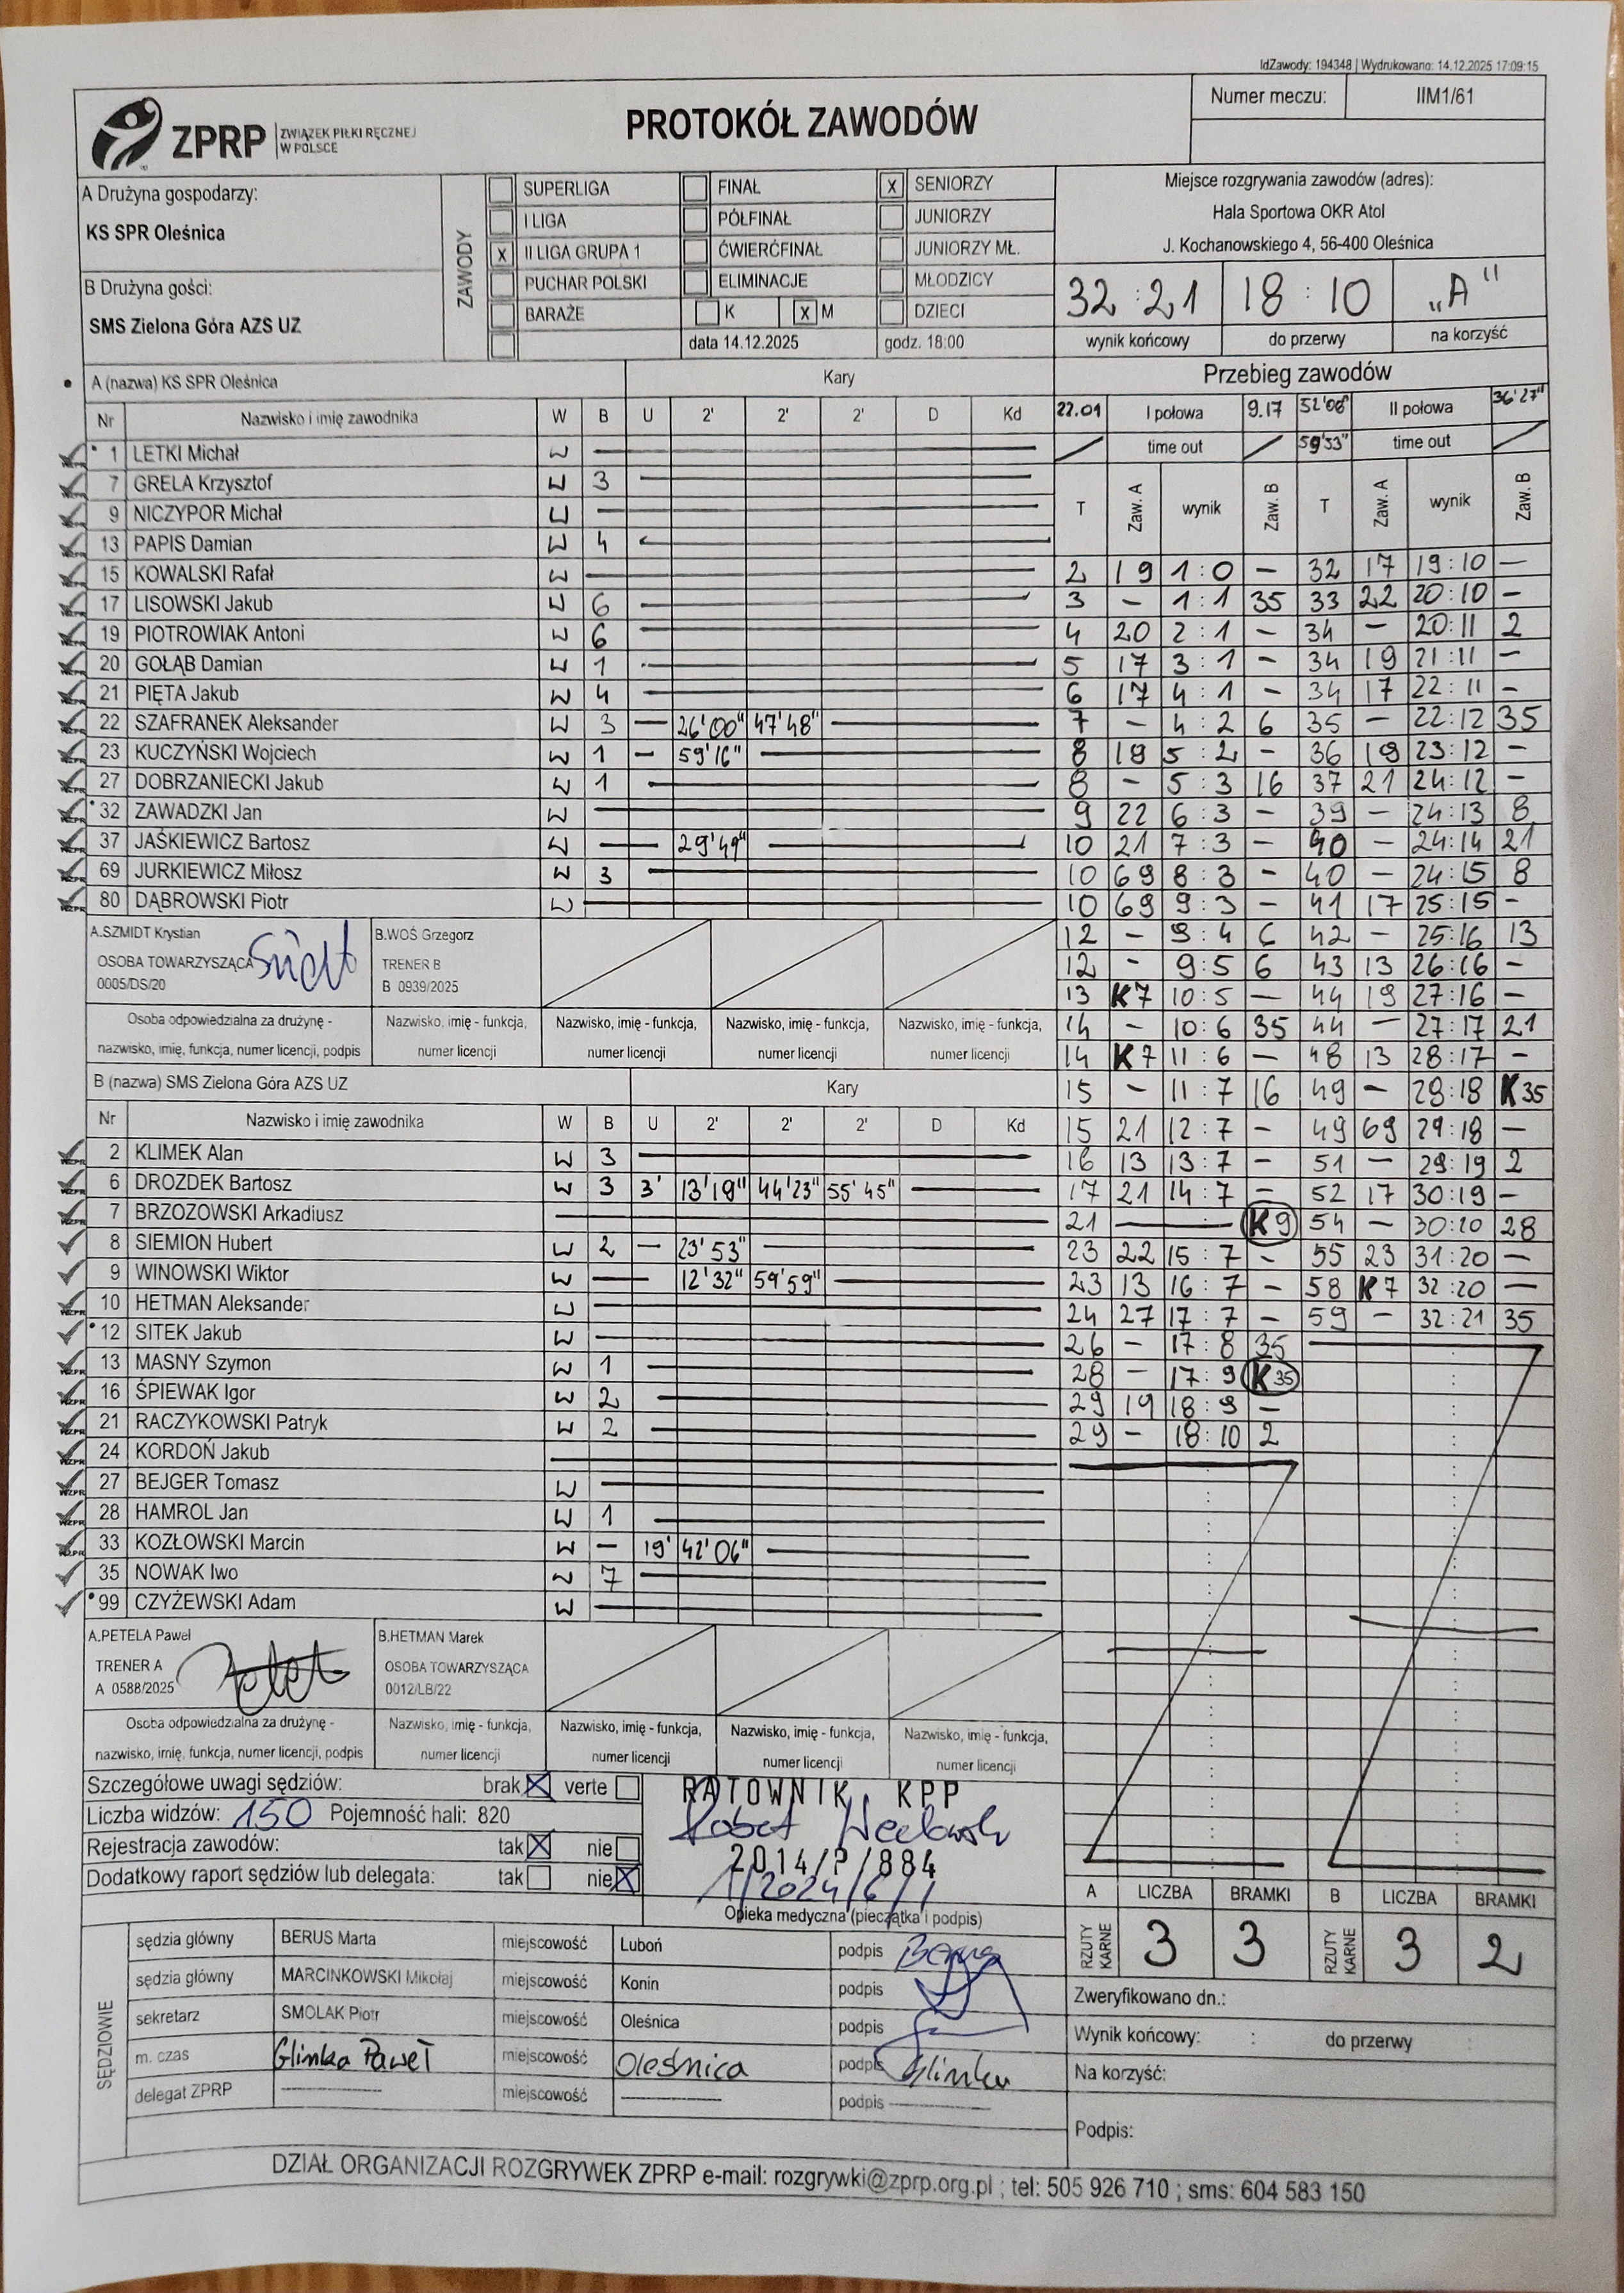 IdZawody: 194348 | Wydrukowano: 14.12.2025 17:09:15
ZPRP ZWIĄZEK PIŁKI RĘCZNEJ W POLSCE
PROTOKÓŁ ZAWODÓW
Numer meczu: IIM1/61
A Drużyna gospodarzy:
KS SPR Oleśnica
B Drużyna gości:
SMS Zielona Góra AZS UZ
ZAWODY
SUPERLIGA
I LIGA
x II LIGA GRUPA 1
PUCHAR POLSKI
BARAŻE
FINAŁ
PÓŁFINAŁ
ĆWIERĆFINAŁ
ELIMINACJE
K x M
data 14.12.2025
x SENIORZY
JUNIORZY
JUNIORZY MŁ.
MŁODZICY
DZIECI
godz. 18:00
Miejsce rozgrywania zawodów (adres):
Hala Sportowa OKR Atol
J. Kochanowskiego 4, 56-400 Oleśnica
32:21 18:10 „A"
wynik końcowy do przerwy na korzyść
A (nazwa) KS SPR Oleśnica Kary
Nr Nazwisko i imię zawodnika W B U 2' 2' 2' D Kd
1 LETKI Michał W
7 GRELA Krzysztof W 3
9 NICZYPOR Michał W
13 PAPIS Damian W 4
15 KOWALSKI Rafał W
17 LISOWSKI Jakub W 6
19 PIOTROWIAK Antoni W 6
20 GOŁĄB Damian W 1
21 PIĘTA Jakub W 4
22 SZAFRANEK Aleksander W 3 — 26'00" 47'48"
23 KUCZYŃSKI Wojciech W 1 — 59'16"
27 DOBRZANIECKI Jakub W 1
32 ZAWADZKI Jan W
37 JAŚKIEWICZ Bartosz W — 29'49"
69 JURKIEWICZ Miłosz W 3
80 DĄBROWSKI Piotr W
A.SZMIDT Krystian
OSOBA TOWARZYSZĄCA
0005/DS/20
B.WOŚ Grzegorz
TRENER B
B 0939/2025
Osoba odpowiedzialna za drużynę -
nazwisko, imię, funkcja, numer licencji, podpis
Nazwisko, imię - funkcja, numer licencji
Nazwisko, imię - funkcja, numer licencji
Nazwisko, imię - funkcja, numer licencji
Nazwisko, imię - funkcja, numer licencji
B (nazwa) SMS Zielona Góra AZS UZ Kary
Nr Nazwisko i imię zawodnika W B U 2' 2' 2' D Kd
2 KLIMEK Alan W 3
6 DROZDEK Bartosz W 3 3' 13'19" 44'23" 55'45"
7 BRZOZOWSKI Arkadiusz
8 SIEMION Hubert W 2 — 23'53"
9 WINOWSKI Wiktor W — 12'32" 59'59"
10 HETMAN Aleksander W
12 SITEK Jakub W
13 MASNY Szymon W 1
16 ŚPIEWAK Igor W 2
21 RACZYKOWSKI Patryk W 2
24 KORDOŃ Jakub
27 BEJGER Tomasz W
28 HAMROL Jan W 1
33 KOZŁOWSKI Marcin W — 19' 42'06"
35 NOWAK Iwo W 7
99 CZYŻEWSKI Adam W
A.PETELA Paweł
TRENER A
A 0588/2025
B.HETMAN Marek
OSOBA TOWARZYSZĄCA
0012/LB/22
Osoba odpowiedzialna za drużynę -
nazwisko, imię, funkcja, numer licencji, podpis
Nazwisko, imię - funkcja, numer licencji
Nazwisko, imię - funkcja, numer licencji
Nazwisko, imię - funkcja, numer licencji
Nazwisko, imię - funkcja, numer licencji
Przebieg zawodów
22.01 I połowa 9.17 52'08" II połowa 36'27"
time out 59'53" time out
T Zaw. A wynik Zaw. B T Zaw. A wynik Zaw. B
2 19 1:0 — 32 17 19:10 —
3 — 1:1 35 33 22 20:10 —
4 20 2:1 — 34 — 20:11 2
5 17 3:1 — 34 19 21:11 —
6 17 4:1 — 34 17 22:11 —
7 — 4:2 6 35 — 22:12 35
8 19 5:2 — 36 19 23:12 —
8 — 5:3 16 37 21 24:12 —
9 22 6:3 — 39 — 24:13 8
10 21 7:3 — 40 — 24:14 21
10 69 8:3 — 40 — 24:15 8
10 69 9:3 — 41 17 25:15 —
12 — 9:4 6 42 — 25:16 13
12 — 9:5 6 43 13 26:16 —
13 K7 10:5 — 44 19 27:16 —
14 — 10:6 35 44 — 27:17 21
14 K7 11:6 — 48 13 28:17 —
15 — 11:7 16 49 — 28:18 K35
15 21 12:7 — 49 69 29:18 —
16 13 13:7 — 51 — 29:19 2
17 21 14:7 — 52 17 30:19 —
21 — K9 54 — 30:20 28
23 22 15:7 — 55 23 31:20 —
23 13 16:7 — 58 K7 32:20 —
24 27 17:7 — 59 — 32:21 35
26 — 17:8 35
28 — 17:9 K35
29 19 18:9 —
29 — 18:10 2
Szczegółowe uwagi sędziów: brak X verte
Liczba widzów: 150 Pojemność hali: 820
Rejestracja zawodów: tak X nie
Dodatkowy raport sędziów lub delegata: tak nie X
RATOWNIK KPP
2014/P/884
1/2024/6/1
Opieka medyczna (pieczątka i podpis)
A LICZBA BRAMKI B LICZBA BRAMKI
RZUTY KARNE 3 3 RZUTY KARNE 3 2
SĘDZIOWIE
sędzia główny BERUS Marta miejscowość Luboń podpis
sędzia główny MARCINKOWSKI Mikołaj miejscowość Konin podpis
sekretarz SMOLAK Piotr miejscowość Oleśnica podpis
m. czas Glinka Paweł miejscowość Oleśnica podpis Glinka
delegat ZPRP miejscowość podpis
Zweryfikowano dn.:
Wynik końcowy: : do przerwy :
Na korzyść:
Podpis:
DZIAŁ ORGANIZACJI ROZGRYWEK ZPRP e-mail: rozgrywki@zprp.org.pl ; tel: 505 926 710 ; sms: 604 583 150